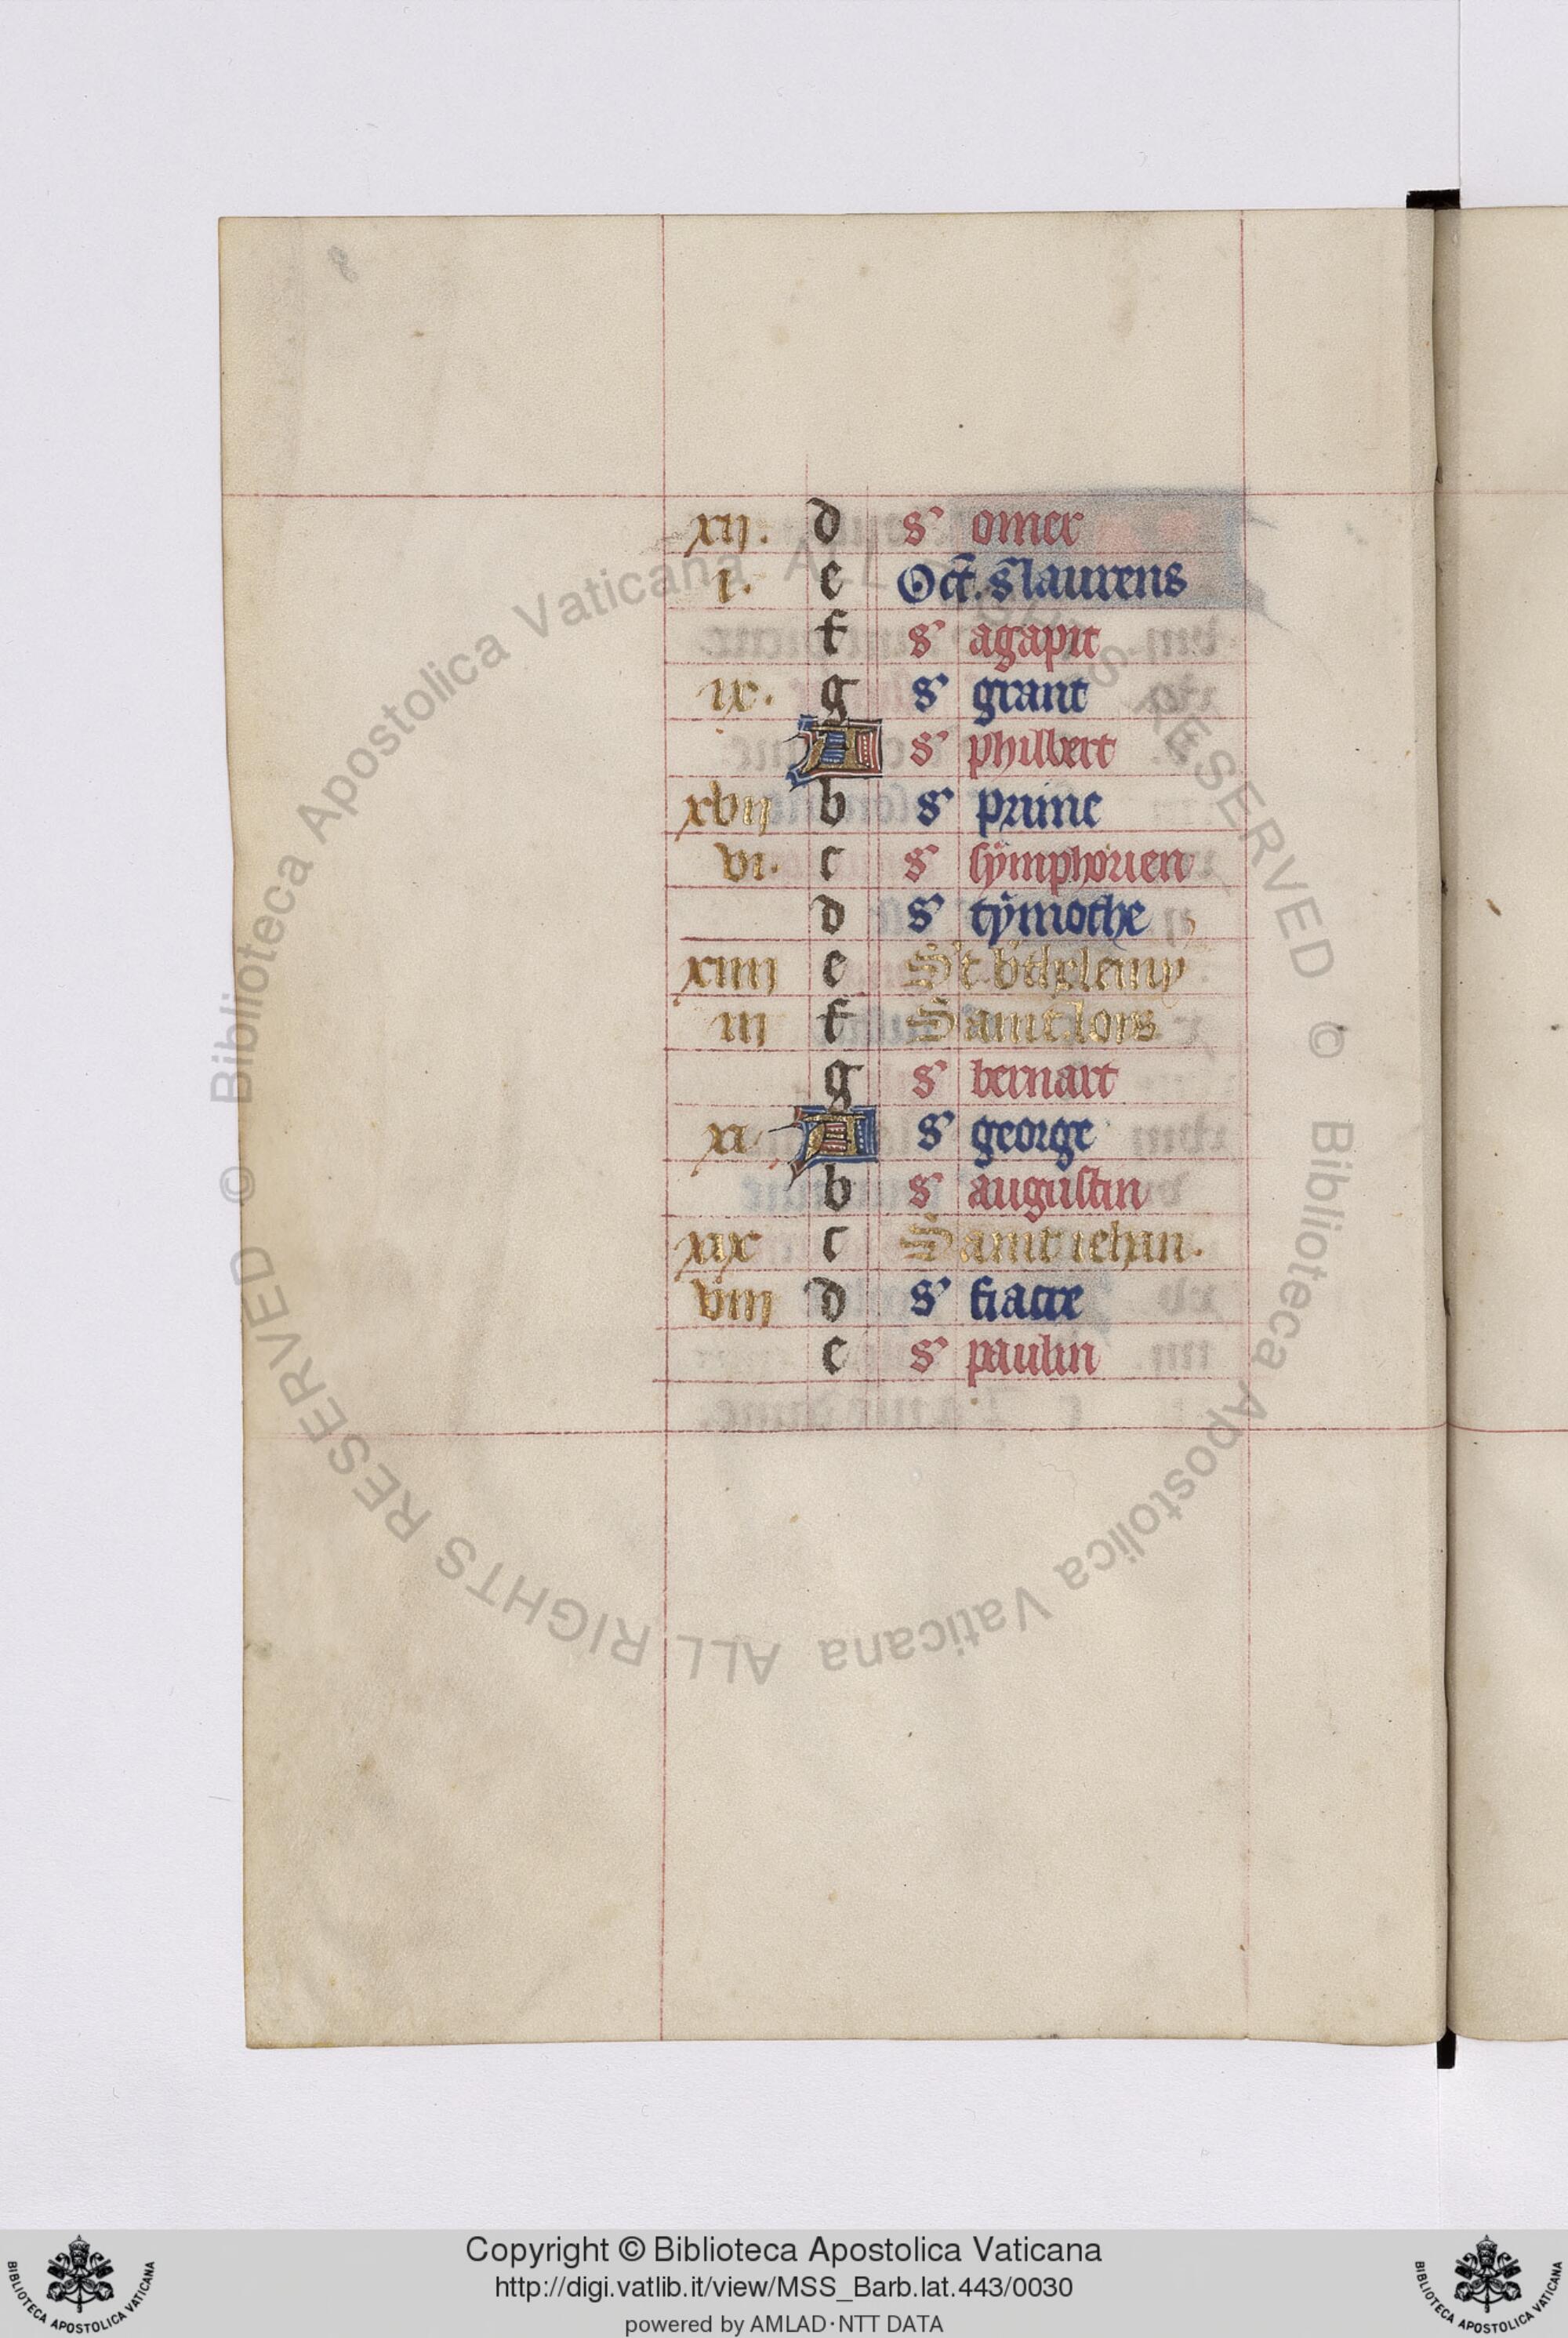 xij. d s' omer
i. e Oct̄. s̄ laurens
f s' agapit
ix. g s' grant
A s' philbert
xvij b s' prime
vi. c s' symphorien
d s' tymothe
xiiij e St b'thelemy
iij f Saint lois
g s' bernart
xi. A s' george
b s' augustin
xix c Saint iehan.
viij d s' fiacre
e s' paulin
© Biblioteca Apostolica Vaticana ALL RIGHTS RESERVED © Biblioteca Apostolica Vaticana ALL RIGHTS RESERVED
Copyright © Biblioteca Apostolica Vaticana
http://digi.vatlib.it/view/MSS_Barb.lat.443/0030
powered by AMLAD·NTT DATA
BIBLIOTECA APOSTOLICA VATICANA
BIBLIOTECA APOSTOLICA VATICANA